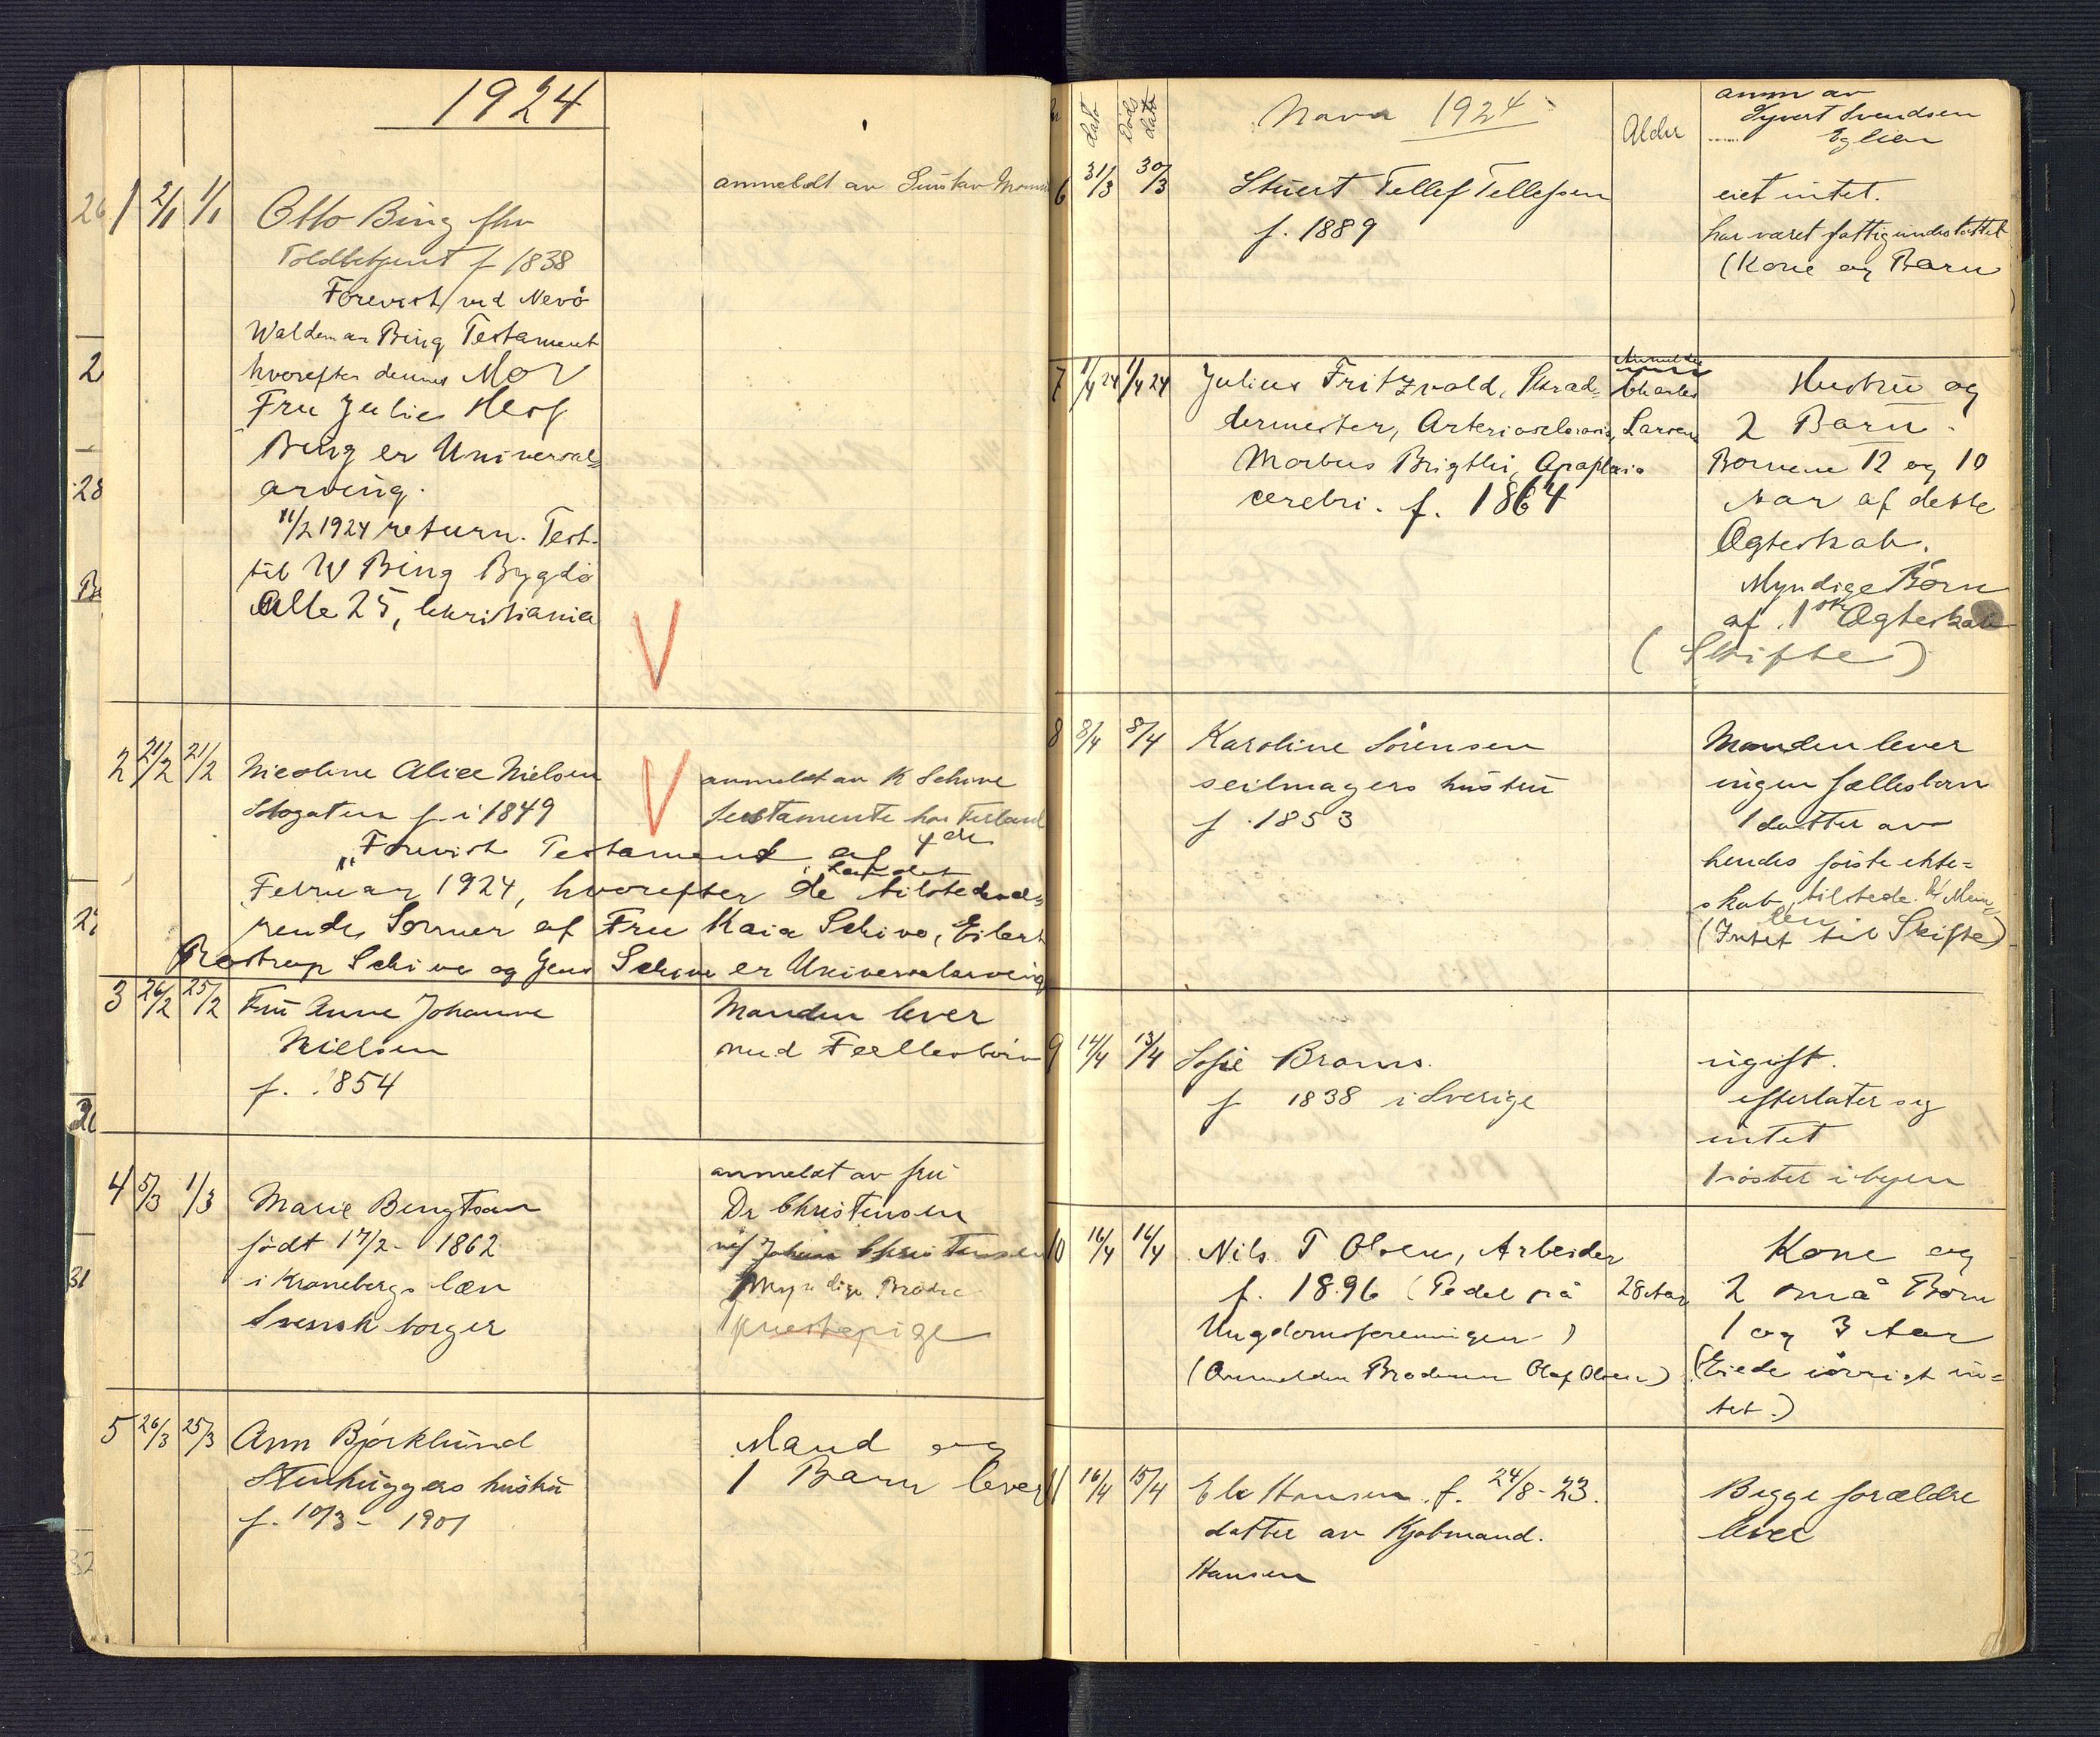 1924
1 2/1 1/1
anmeldt av Gustav
Otto Bing fhv
Toldbetjent f 1838
Forevist ved Nevø
Waldemar Bing Testament
hvorefter dennes Mor
Fru Julie
Bing er Universal-
arving.
11/2 1924 return. Test.
til W Bing Bygdø
Alle 25, Christiania
2 21/2 21/2
Nicoline Alice Nielsen
Slogaten f. i 1849
anmeldt av K Schive
testamente hos
Forevist Testament af 4de
Februar 1924, hvorefter de tilstedevæ-
rende Sønner af Fru Kaia Schive, Eilert
Rostrup Schive og Jens Schive er Universalarving
3 26/2 25/2
Fru Anne Johanne
Nielsen
f. 1854
Manden lever
med Fællesbörn
4 5/3 1/3
Marie Bengtson
födt 17/2 - 1862
i Kronebergs læn
Svensk borger
anmeldt av fru
Dr Christensen
Myndige Brödre
5 26/3 25/3
Ann Bjørklund
Stenhuggers hustru
f. 10/3 - 1901
Mand og
1 Barn lever
dato
Döds
dato
Navn 1924
Alder
anm av
Syvert Svendsen
6 31/3 30/3
Stuert Tellef Tellefsen
f. 1889
eiet intet.
har været fattigunderstöttet
(Kone og Barn
7 1/4 24 1/4 24
Julius Fritzvald, Skræd-
dermester, Arteriosclerosis,
Morbus Brigthii, Apoplexia
cerebri. f. 1864
Anmelder
Charles
Larsen
Hustru og
2 Barn.
Bornene 12 og 10
Aar af dette
Ægteskab.
Myndige Börn
af 1ste Ægteskab
(Skifte)
8 8/4 8/4
Karoline Sörensen
seilmagers hustru
f. 1853
Manden lever
ingen fællesbarn
1 datter av
hendes förste ekte-
skab, tilstede.
(Intet til Skifte)
9 14/4 13/4
Sofie Broms.
f 1838 i Sverige
ugift.
efterlater sig
intet
1 söster i byen
10 16/4 16/4
Nils T Olsen, Arbeider
f. 1896 (Pedel på
Ungdomsforeningen)
(Anmelder Broderen Olaf Olsen)
28 Aar
Kone og
2 små Börn
1 og 3 Aar
(Eiede iövrigt in-
tet.)
11 16/4 15/4
Else Hansen f. 24/8 - 23.
datter av Kjøbmand.
Hansen
Begge forældre
lever